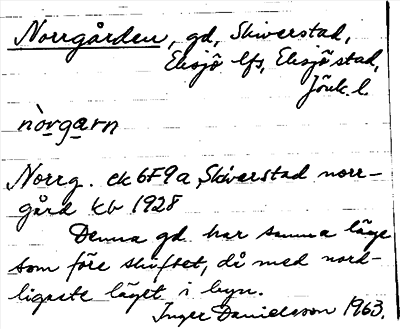 Norrgården, gd, Skiverstad,
Eksjö lfs, Eksjö stad,
Jönk. l.
nòrgarn
Norrg. ek 6F9a, Skiverstad norr-
gård kb 1928
Denna gd har samma läge
som före skiftet, då med nord-
ligaste läget i byn.
Inger Danielsson 1963.